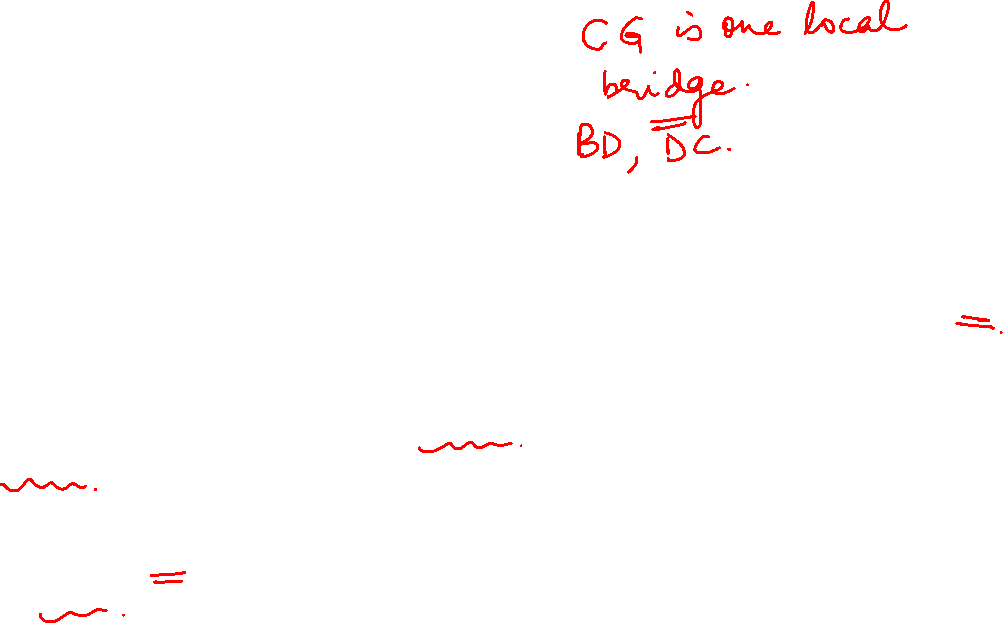 CG is one local
bridge.
BD, DC.